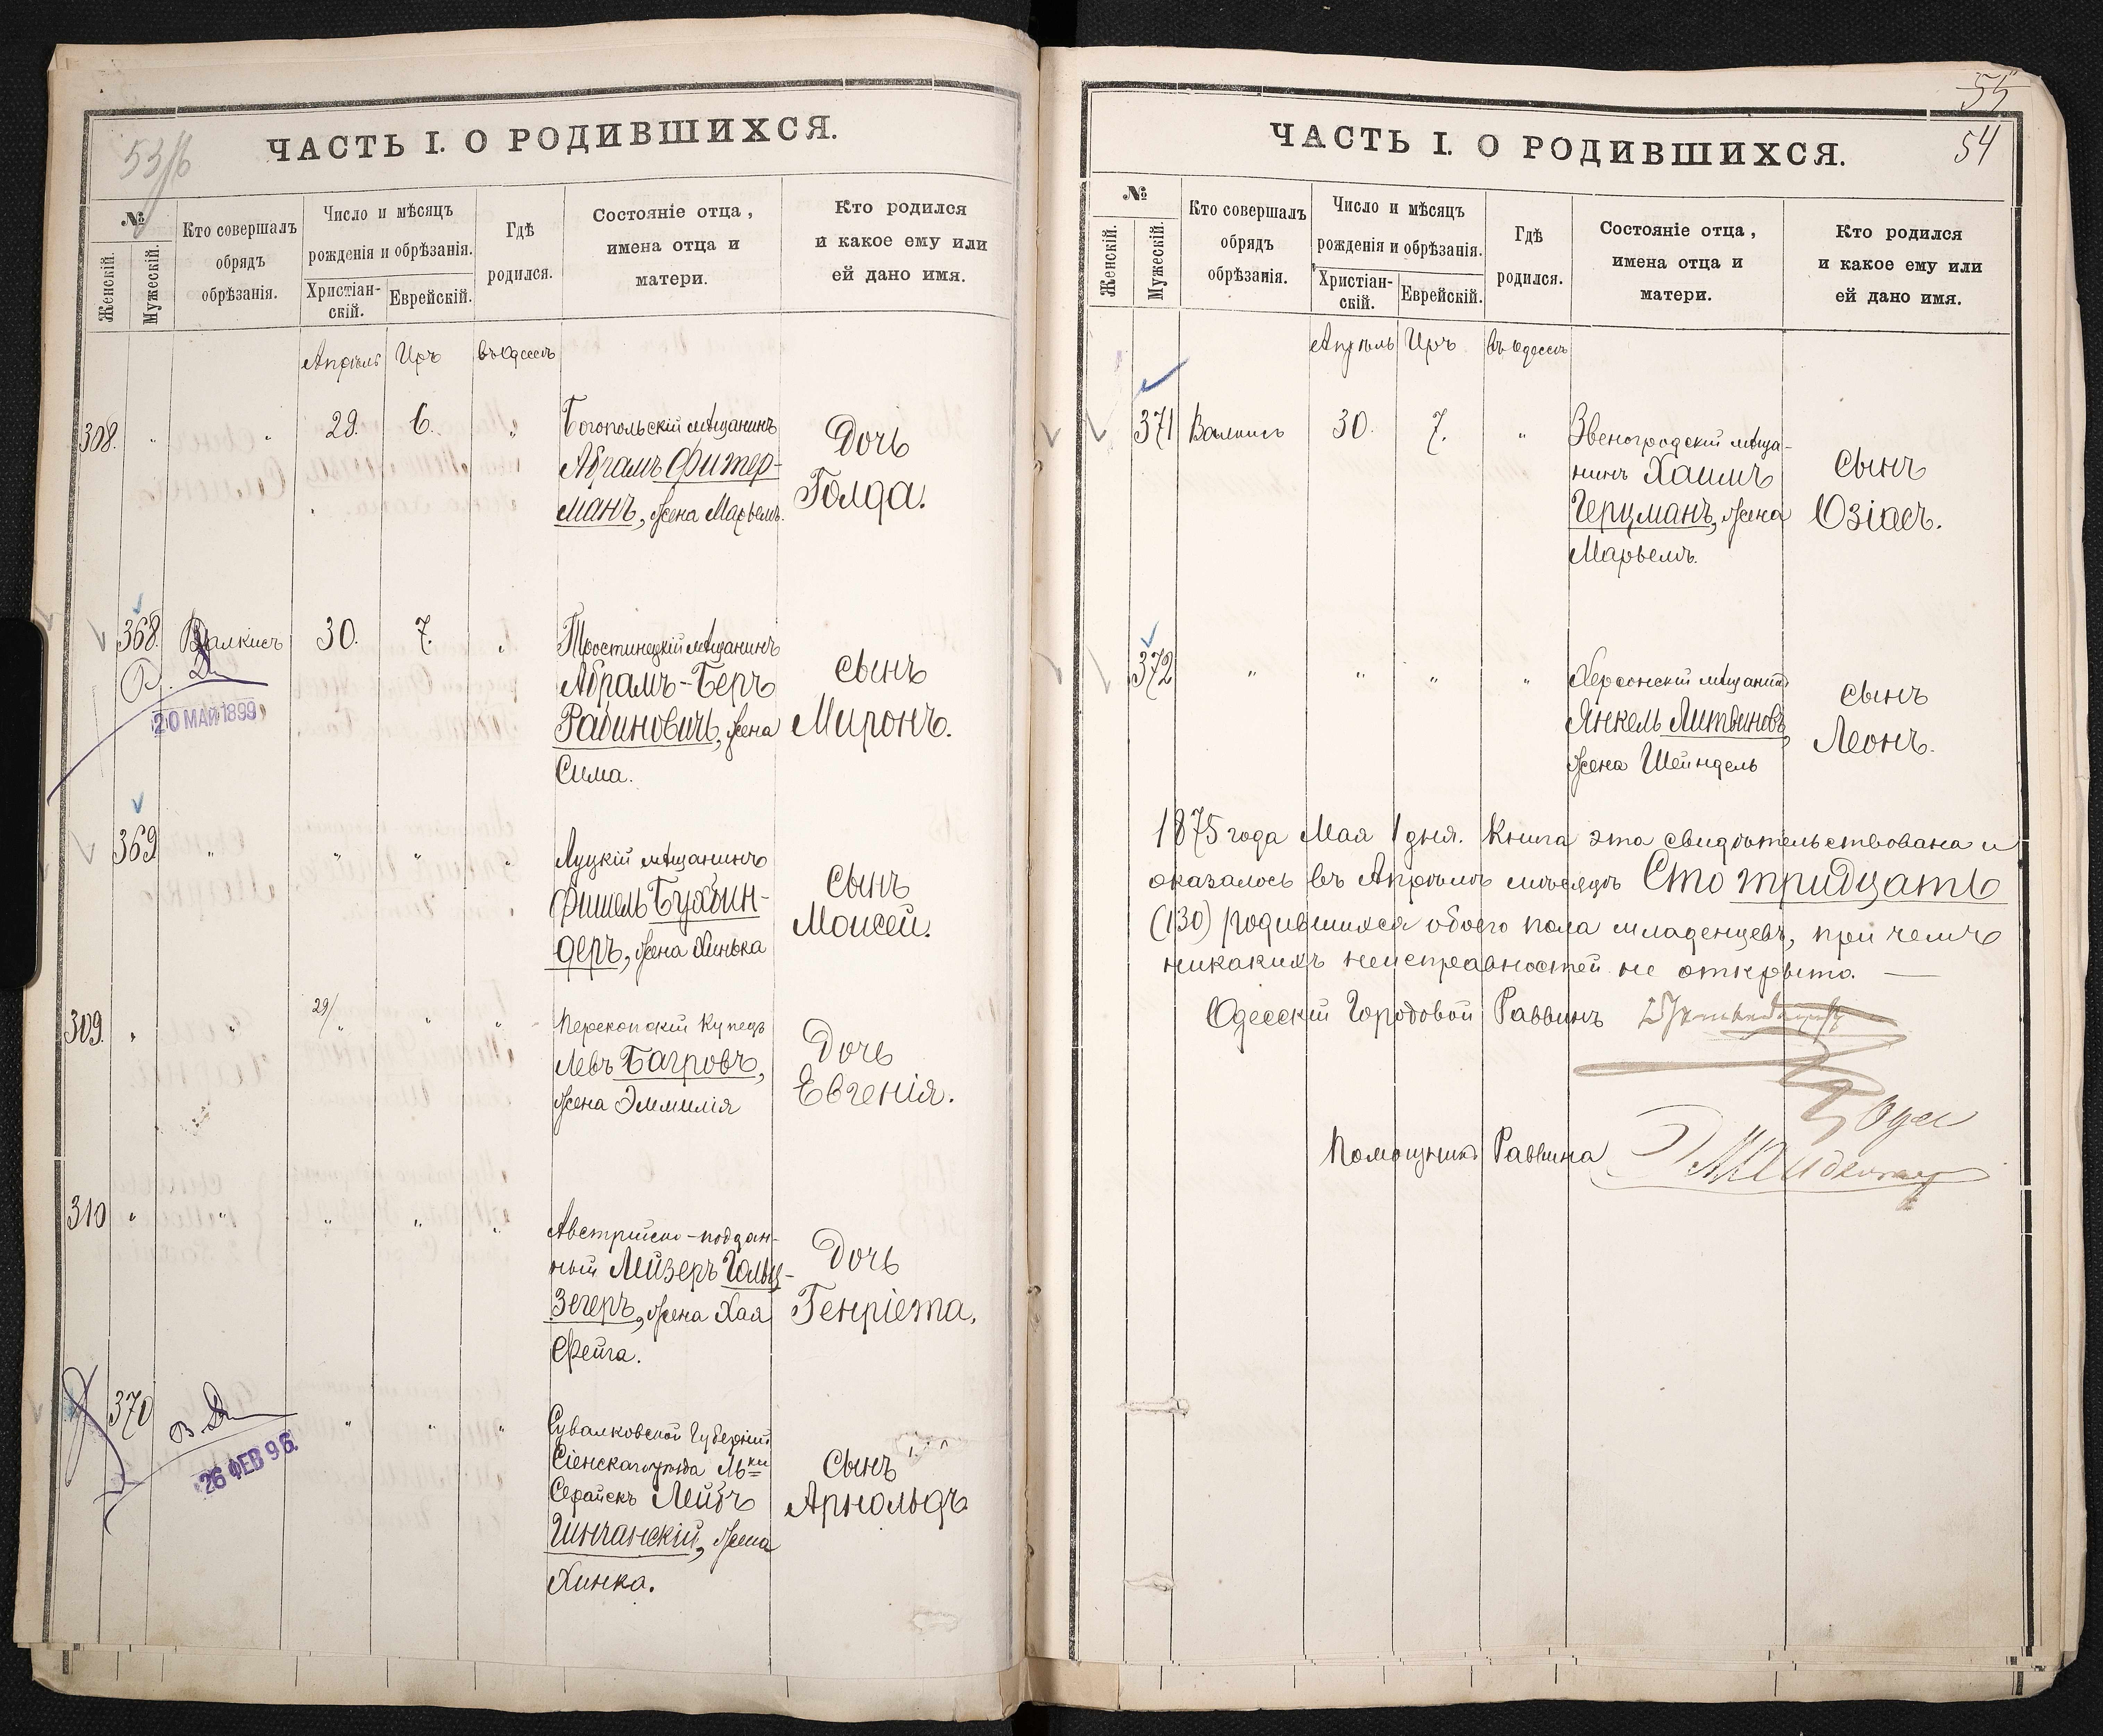 53/б
ЧАСТЬ I. О РОДИВШИХСЯ.
№
Женскій.
Мужескій.
Кто совершалъ
обрядъ
обрѣзанія.
Число и мѣсяцъ
рожденія и обрѣзанія.
Христіан-
скій.
Еврейскій.
Гдѣ
родился.
Состояніе отца,
имена отца и
матери.
Кто родился
и какое ему или
ей дано имя.
Апрѣль Иръ въ Одессѣ
308. " " 29. 6. "
Богопольскій мѣщанинъ
Абрамъ Фитер-
манъ, жена Марьемъ.
Дочь
Голда.
368. Валкисъ 30. 7. "
20 МАЙ 1899
Тростинецкій мѣщанинъ
Абрамъ-Беръ
Рабиновичъ, жена
Сима.
сынъ
Миронъ.
369 " " " "
Луцкій мѣщанинъ
Фишель Бухбин-
деръ, жена Хинька
сынъ
Моисей.
309. " " 29/" " "
Перекопскій купецъ
Левъ Багровъ,
жена Эммилія
Дочь
Евгенія.
310 " " " " "
Австрійско-поддан-
ный Лейзеръ Гольц-
зегеръ, жена Хая
Фейга.
Дочь
Генріета,
370 " " "
26 ФЕВ 96.
Сувалковской Губерніи
уѣзда М-ки
Лейбъ
жена
Хинка.
Сынъ
Арнольдъ
55
54
ЧАСТЬ I. О РОДИВШИХСЯ.
№
Женскій.
Мужескій.
Кто совершалъ
обрядъ
обрѣзанія.
Число и мѣсяцъ
рожденія и обрѣзанія.
Христіан-
скій.
Еврейскій.
Гдѣ
родился.
Состояніе отца,
имена отца и
матери.
Кто родился
и какое ему или
ей дано имя.
Апрѣль Иръ въ Одессѣ
371 Валкисъ 30. 7. "
Звеногродскій мѣща-
нинъ Хаимъ
Герцманъ, жена
Марьемъ.
сынъ
Озіасъ.
372 " " " "
Херсонскій мѣщанинъ
Янкель Литвиновъ,
жена Шейндель
сынъ
Леонъ.
1875 года Мая 1 дня. Книга эта свидѣтельствована и
оказалось въ Апрѣлѣ мѣсяцѣ Сто тридцать
(130) родившихся обоего пола младенцевъ, при чемъ
никакихъ неисправностей не открыто. —
Одесскій Городовой Раввинъ
Помощникъ Раввина